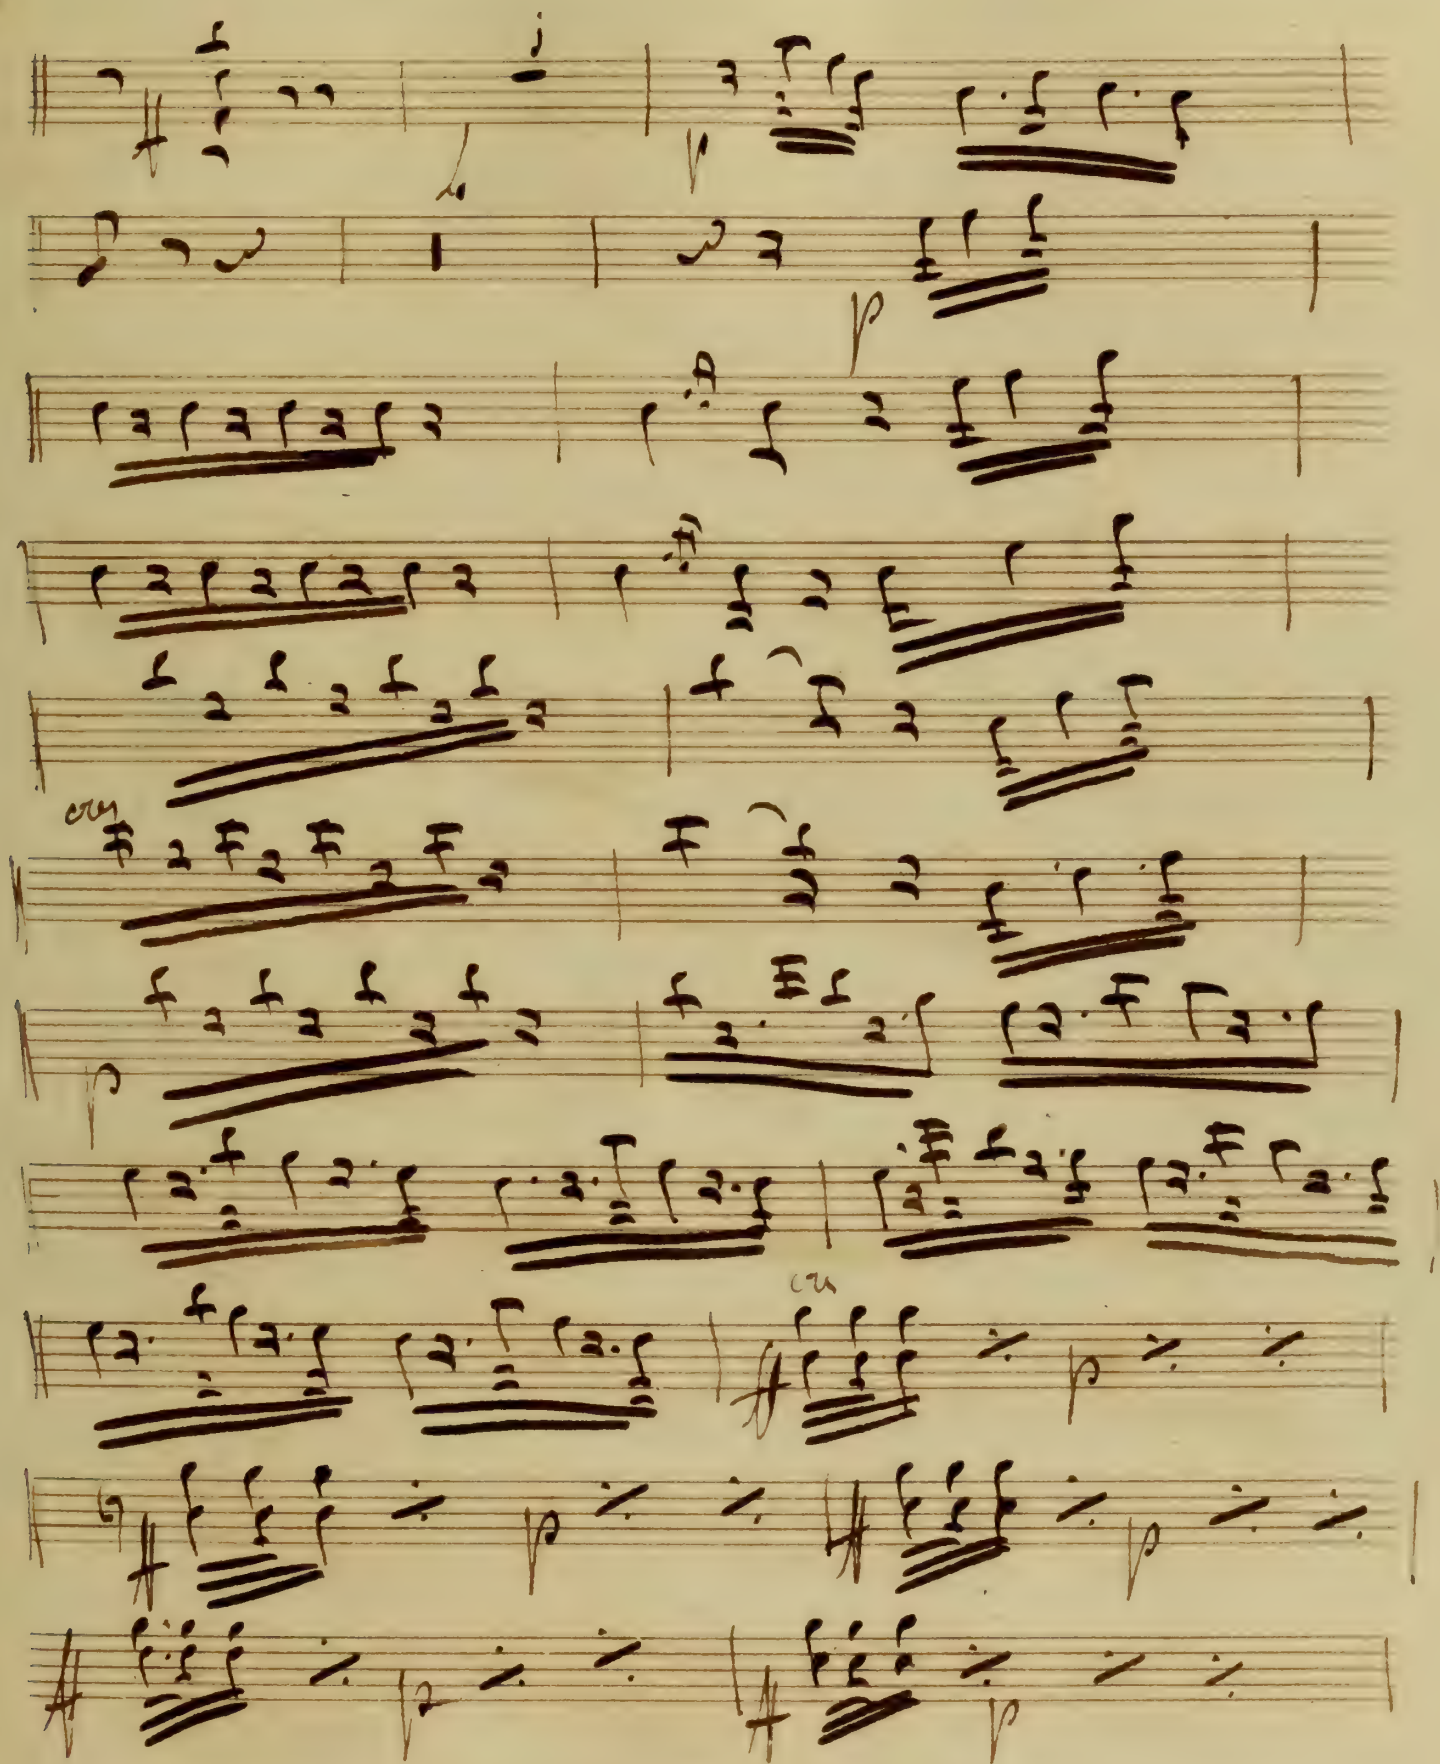 1
ff p
p
cres
p
cres
ff p
ff p ff p
ff p ff p